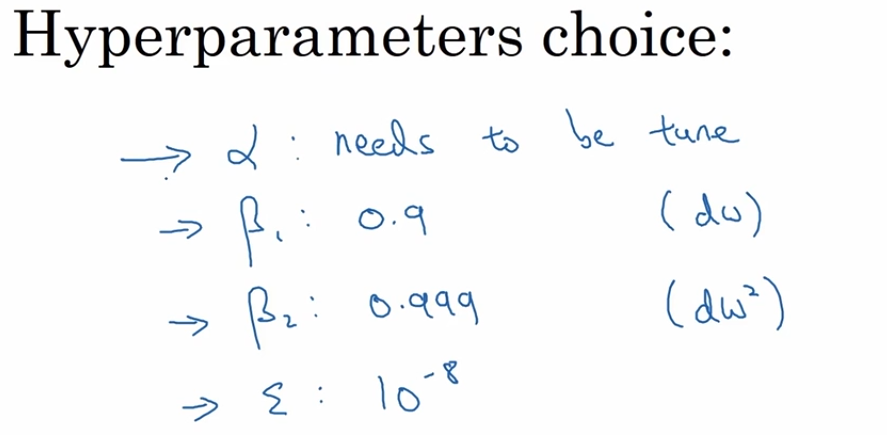 Hyperparameters choice:
→ α : needs to be tune
→ β₁ : 0.9 (dw)
→ β₂ : 0.999 (dw²)
→ ε : 10⁻⁸